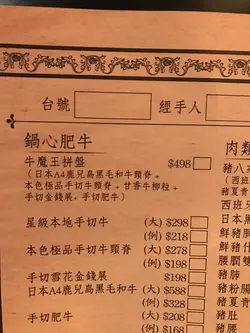 台號
經手人
鍋心肥牛
牛魔王拼盤 $498
(日本A4鹿兒島黑毛和牛頸脊+
本色極品手切牛頸脊+甘香牛柳粒+
手切金錢展+手切肥牛)
星級本地手切牛 (大) $298
(例) $218
本色極品手切牛頸脊 (大) $278
(例) $198
手切雪花金錢展 $198
日本A4鹿兒島黑毛和牛 (大) $588
(例) $328
手切肥牛 (大) $208
(例) $168
肉類
豬八
(西班
豬夏青
西班牙
日本黑
鮮豬腰
鮮豬什
腰膶雙
豬肺
豬粉腸
豬夏青
豬肚
豬